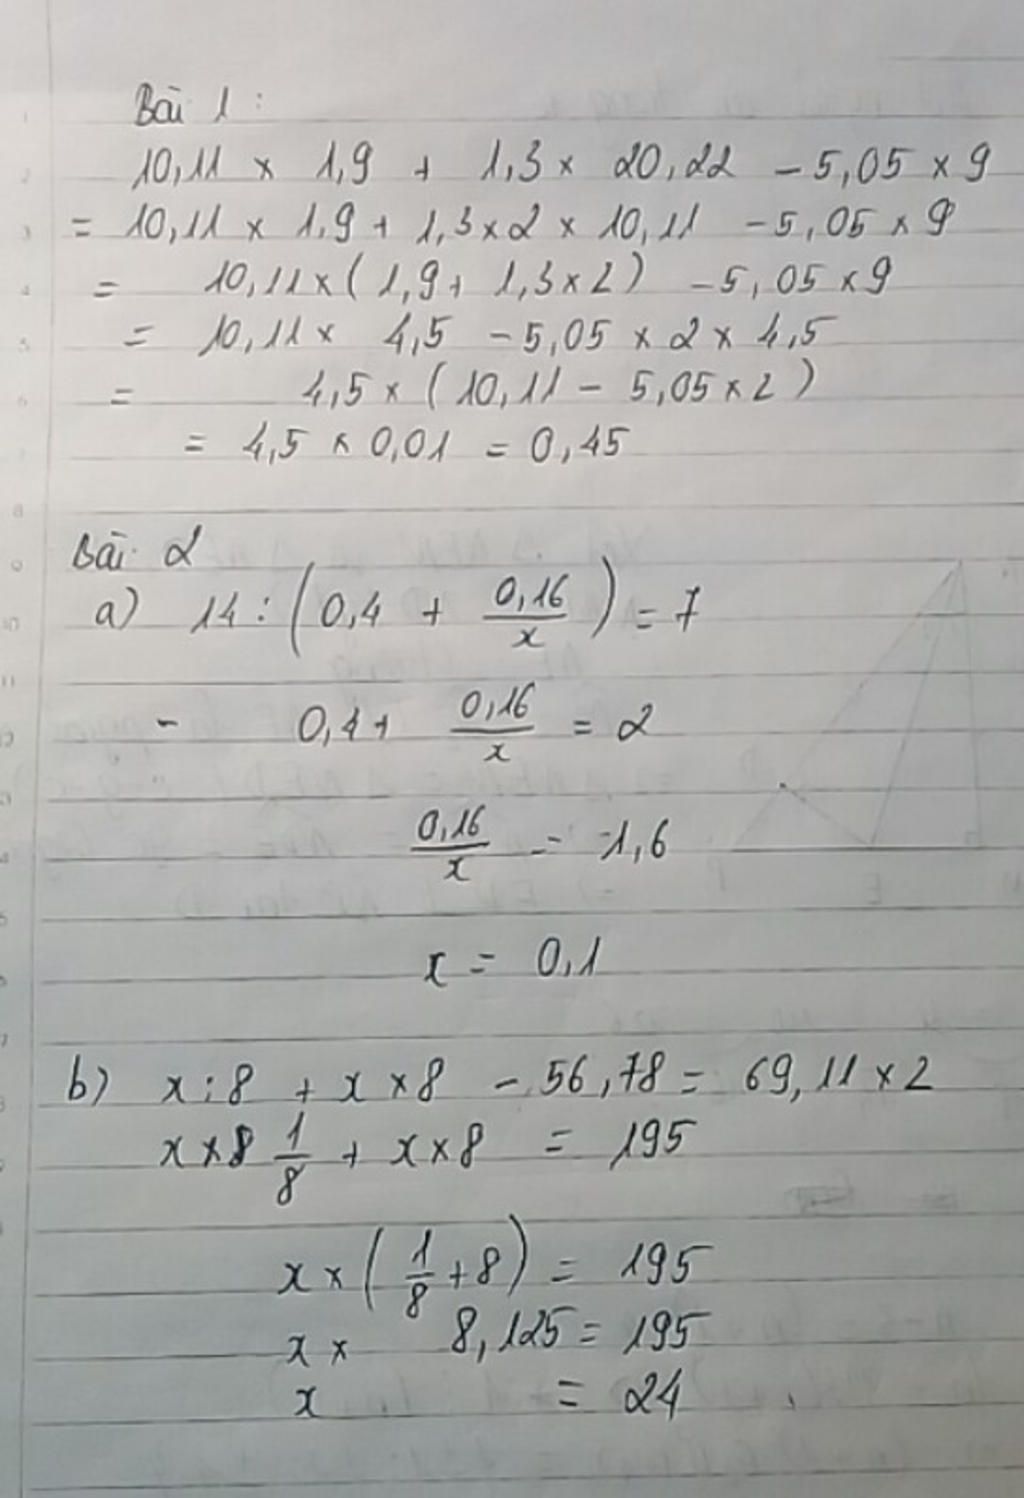 Bài 1 :
10,11 × 1,9 + 1,3 × 20,22 - 5,05 × 9
= 10,11 × 1,9 + 1,3 × 2 × 10,11 - 5,05 × 9
= 10,11 × ( 1,9 + 1,3 × 2 ) - 5,05 × 9
= 10,11 × 4,5 - 5,05 × 2 × 4,5
= 4,5 × ( 10,11 - 5,05 × 2 )
= 4,5 × 0,01 = 0,45
Bài 2
a) 14 : ( 0,4 + 0,16/x ) = 7
- 0,4 + 0,16/x = 2
0,16/x = 1,6
x = 0,1
b) x : 8 + x × 8 - 56,78 = 69,11 × 2
x × 8 1/8 + x × 8 = 195
x × ( 1/8 + 8 ) = 195
x × 8,125 = 195
x = 24